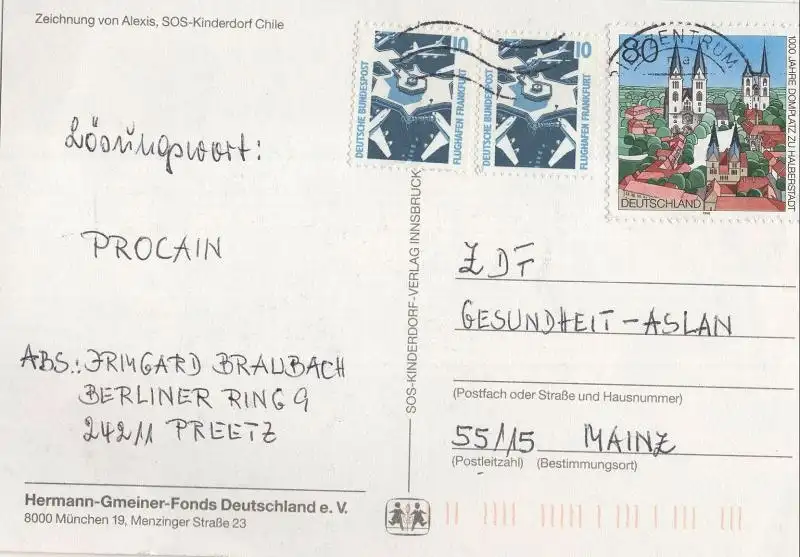 Zeichnung von Alexis, SOS-Kinderdorf Chile
Lösungswort:
PROCAIN
ABS.: IRMGARD BRAUBACH
BERLINER RING 9
24211 PREETZ
Hermann-Gmeiner-Fonds Deutschland e. V.
8000 München 19, Menzinger Straße 23
SOS-KINDERDORF-VERLAG INNSBRUCK
10
DEUTSCHE BUNDESPOST
FLUGHAFEN FRANKFURT
10
DEUTSCHE BUNDESPOST
FLUGHAFEN FRANKFURT
80
ZENTRUM
DEUTSCHLAND
1000 JAHRE DOMPLATZ ZU HALBERSTADT
ZDF
GESUNDHEIT-ASLAN
(Postfach oder Straße und Hausnummer)
55115 MAINZ
(Postleitzahl) (Bestimmungsort)